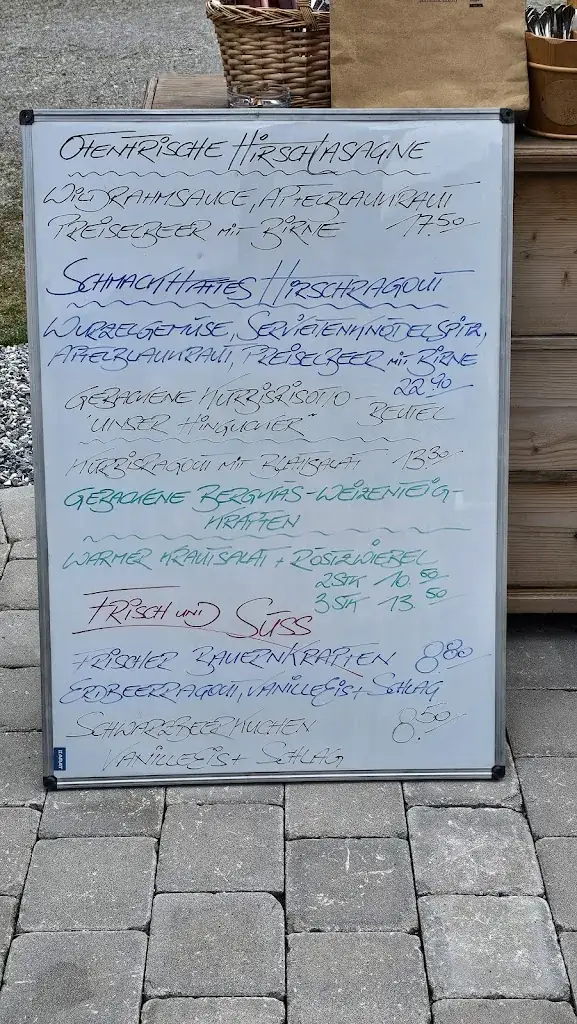 OFENFRISCHE HIRSCHLASAGNE
WILDRAHMSAUCE, APFELBLAUKRAUT
PREISELBEER MIT BIRNE 17.50
SCHMACKHAFTES HIRSCHRAGOUT
WURZELGEMÜSE, SERVIETENKNÖDELSPITZ,
APFELBLAUKRAUT, PREISELBEER MIT BIRNE
22.90
GEBACKENE KÜRBISRISOTTO-
"UNSER HINGUCKER" BEUTEL
KÜRBISRAGOUT MIT BLATTSALAT 13.30
GEBACKENE BERGKÄS-WEIZENTEIG-
KRAPFEN
WARMER KRAUTSALAT + RÖSTZWIEBEL
2STK 10.50
3STK 13.50
FRISCH UND SÜSS
FRISCHER BAUERNKRAPFEN 8.80
ERDBEERRAGOUT, VANILLEEIS + SCHLAG
SCHWARZBEERKUCHEN 8.50
VANILLEEIS + SCHLAG